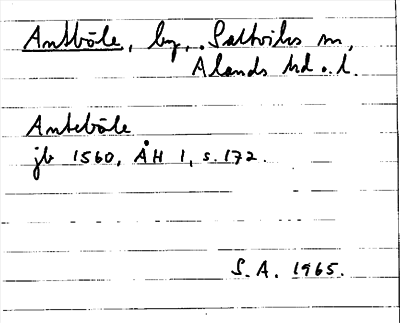 Antböle, by, Saltviks sn,
Ålands hd o. l.
Anteböle
jb 1560, ÅH 1, s. 172.
S. A. 1965.